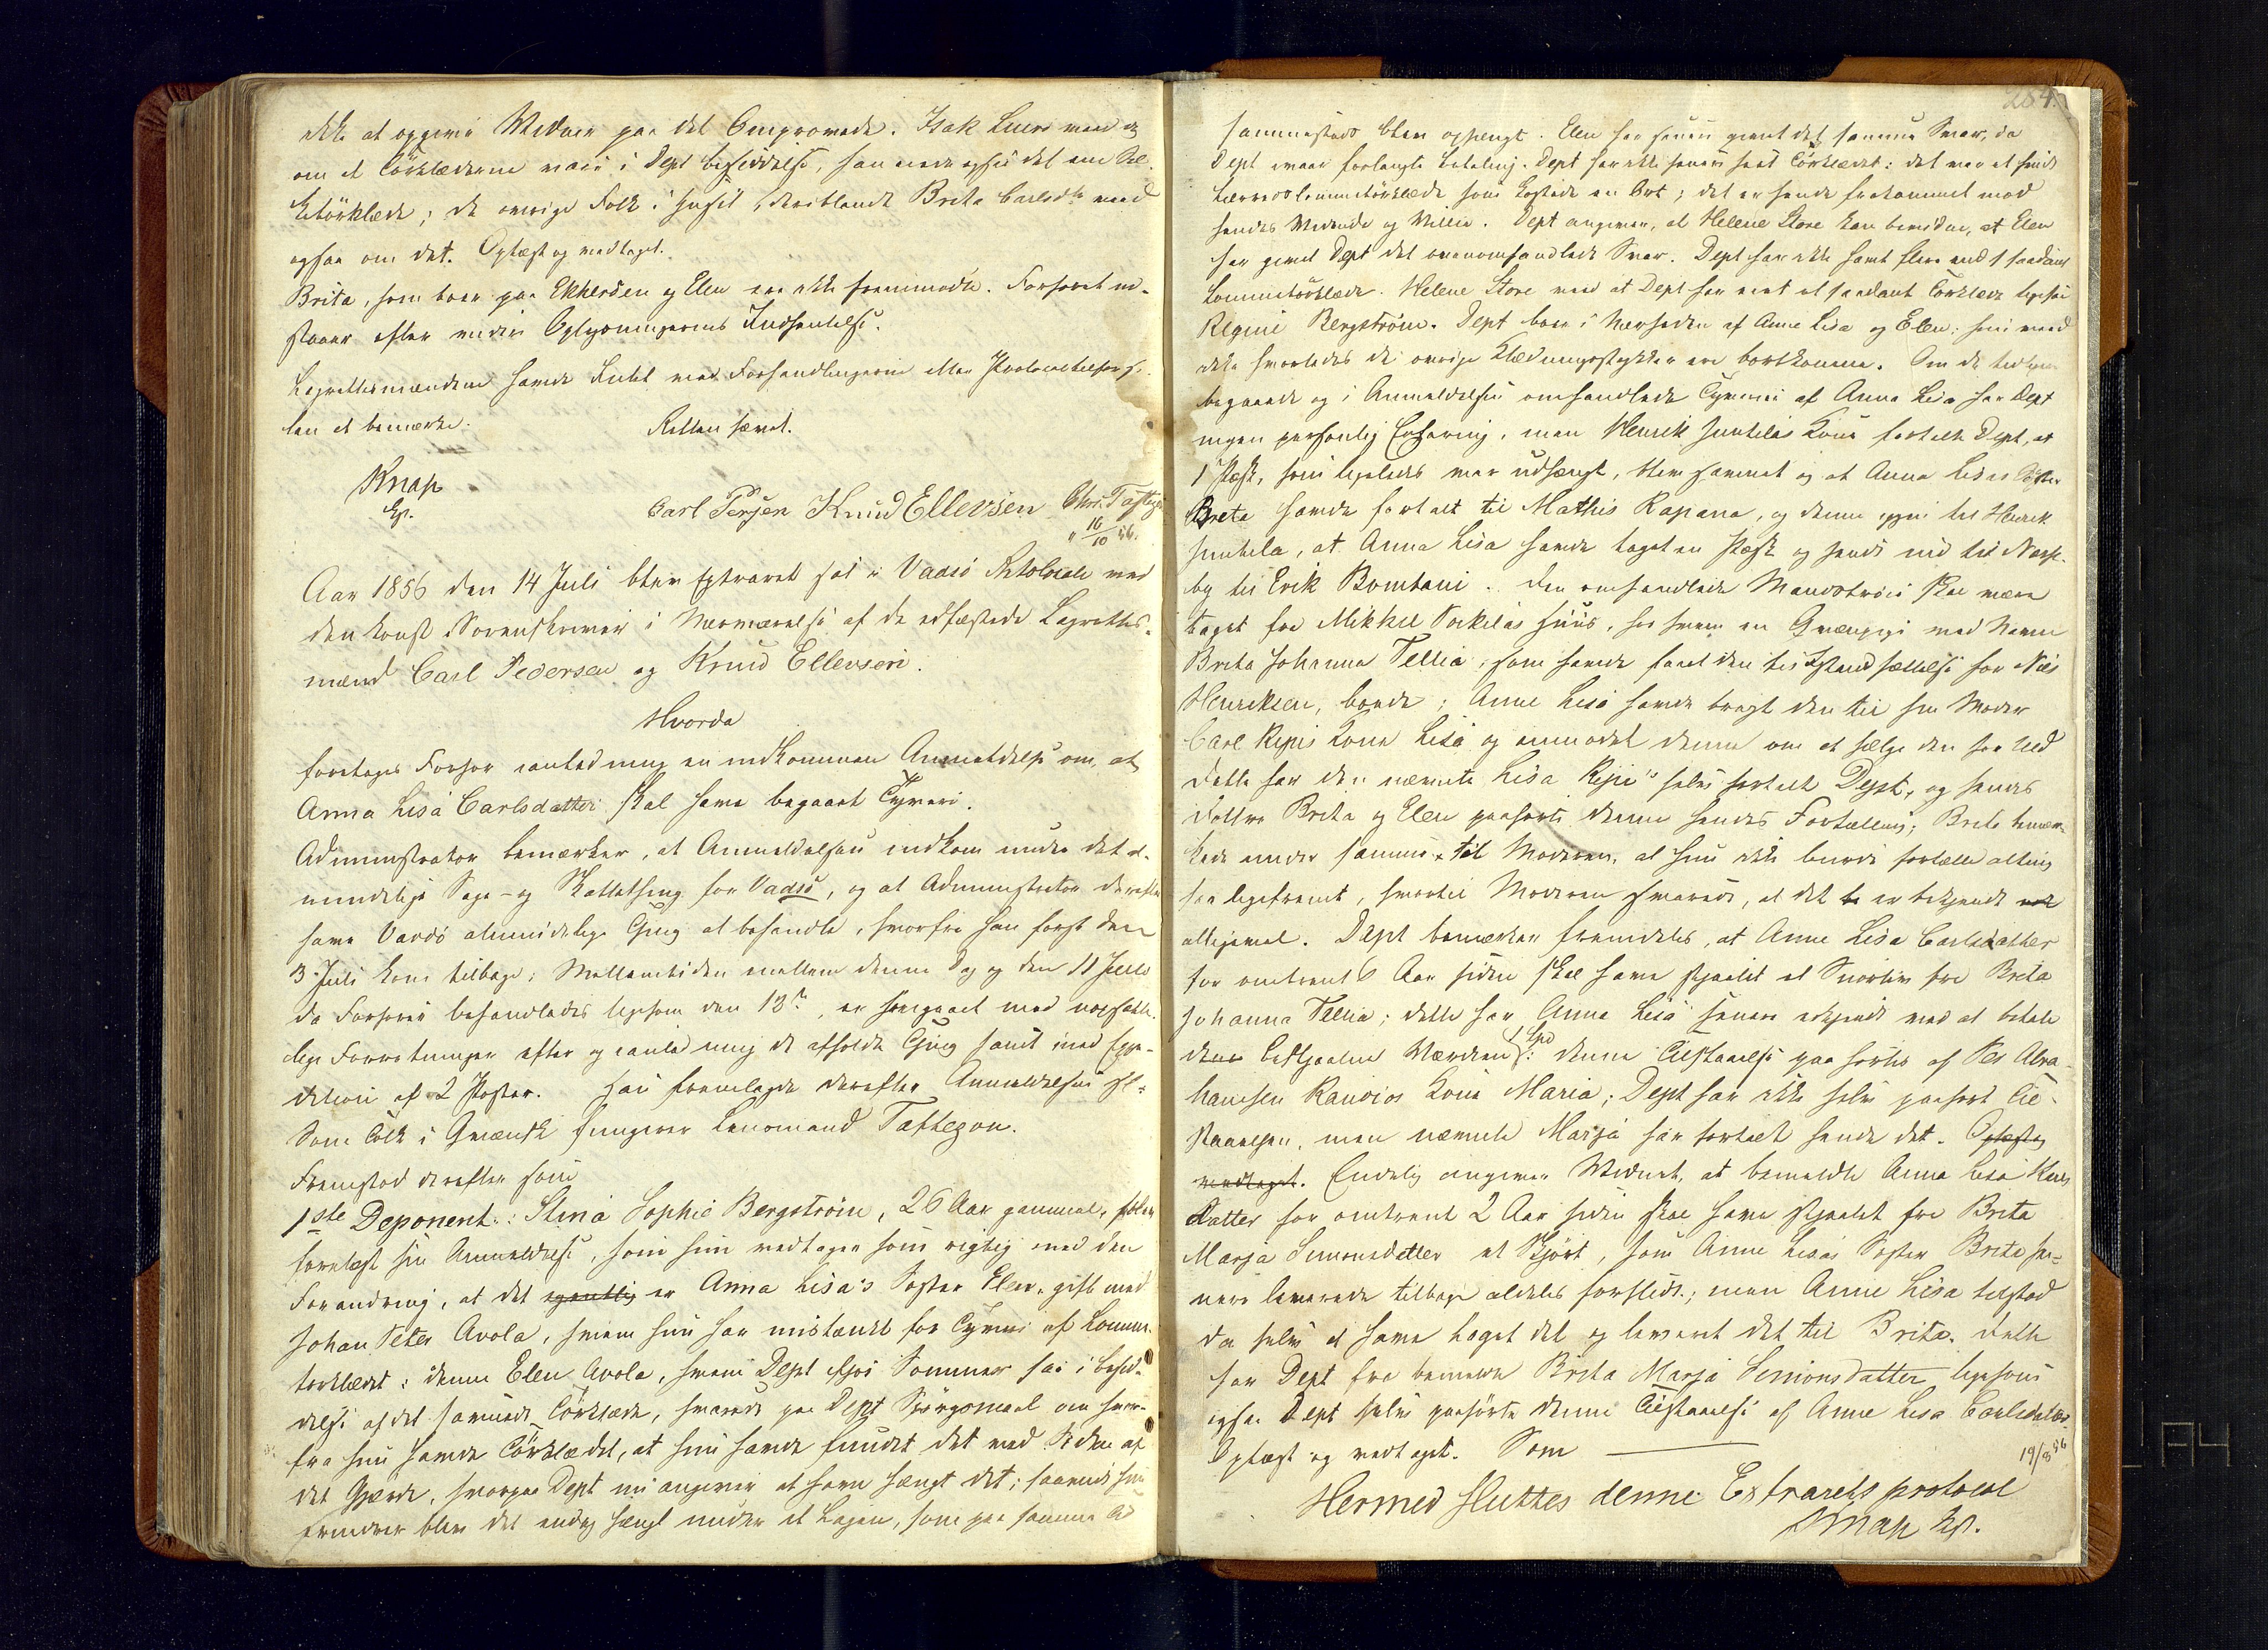 ikke at opgive Vidner paa det Omprovede. Isak Lure veed og
om et Törklæderne var i Dept besiddelse, han
ketörklæde; de övrige Folk i Huset, deriblandt Brita Carlsdtr veed
ogsaa om det. Oplæst og vedtaget.
Brita, som boer paa Ekkeröen og Elen ere ikke fremmödte. Forhöret ud-
staaer efter videre Oplysningernes Indhentelse.
Lagrettesmændene havde Intet ved Forhandlingerne eller Protocollationen
len at bemærke. Retten hævet.
Knap
Ef.
Carl Persen Knud Ellevsen Chr. Taftezon
16/10 56.
Aar 1856 den 14 Juli blev Extraret sat i Vadsö Retslocale ved
den const. Sorenskriver i Nærværelse af de edfæstede Lagrettes-
mænd Carl Pedersen og Knud Ellevsen.
Hvorda
foretages Forhör i anledning en indkommen Anmeldelse om, at
Anna Lisa Carlsdatter skal have begaaet Tyveri.
Administrator bemærker, at Anmeldelsen indkom under det al-
mindelige Sage- og Skattething for Vadsö, og at Administrator derefter
havde Vardö almindelige Thing at behandle, hvorfra han först den
3 Juli kom tilbage; Mellemtiden mellem denne Dag og den 11 Juli
da Forhöret behandledes ligesom den 12te, er hengaaet med uopsætte-
lige Forretninger efter og i anledning de afholdte Thing samt med Expe-
dition af 2 Poster. Han fremlagde derefter Anmeldelsen
Som Tolk i Qvænsk fungerer Lensmand Taftezon.
Fremstod derefter som
1ste Deponent: Stina Sophie Bergström, 26 Aar gammel, blev
forelæst sin Anmeldelse, som hun vedtager som rigtig med den
Forandring, at det egentlig er Anna Lisa's Söster Elen, gift med
Johan Peter Avola, hvem hun har mistænkt for Tyveri af Lomme-
törklædet; denne Elen Avola, hvem Dept ifjor Sommer saa i besid-
delse af det samme Törklæde, svarede paa Dept Spörgsmaal om hvor-
fra hun havde Törklædet, at hun havde fundet det ved Siden af
det Gjærde, hvorpaa Dept nu angiver at have hængt det; saavidt hun
erindrer blev det endog hængt under et Lagen, som paa samme
284.
sammesteds blev ophængt. Elen har senere givet det samme Svar, da
Dept forlangte betaling. Dept har ikke senere seet Törklædet: det var et
lommetörklæde som kostede en Ort; det er hende frakommet mod
hendes Vidende og Villie. Dept angiver, at Helene Store kan bevidne, at Elen
har givet Dept det ovenomhandlede Svar. Dept har ikke havt flere end 1 saadant
Lommetörklæde. Helene Store veed at Dept har eiet et saadant Törklæde ligesaa
Regine Bergström. Dept boer i Nærheden af Anne Lisa og Elen; hun veed
ikke hvorledes de övrige Klædningsstykker ere bortkomne. Om de tidligere
begaaede og i Anmeldelsen omhandlede Tyverier af Anna Lisa har Dept
ingen personlig Erfaring, men Henrik Juntilas Kone fortalte Dept, at
1 Pæsk, som ligeledes var udhængt, blev savnet og at Anna Lisas Söster
Brita havde fortalt til Mathis Rapana, og denne igjen til Henrik
Juntela, at Anna Lisa havde taget en Pæsk og sendt ind til Næsse-
by til Erik Bomtani. Den omhandlede Mandströie skal være
taget fra Mikkel Vockilas Huus, hos hvem en Qvænpige ved Navn
Brita Johanna Tellia, som havde faaet den til Istandsættelse for Nils
Henriksen, boede; Anne Lisa havde bragt den til sin Moder
Carl Ripis Kone Lisa og anmodet denne om at sælge den for Uld
dette har den nævnte Lisa Ripi's selv fortalt Dept, og hendes
döttre Brita og Elen paahörte denne hendes Fortælling; Brita bemær-
kede under samme til Moderen, at hun ikke burde fortælle alting
saa ligefremt, hvortil Moderen svarede, at det er bekjendt
alligevel. Dept bemærker fremdeles, at Anne Lisa Carlsdatter
for omtrent 6 Aar siden skal have stjaalet et Snörliv fra Brita
Johanna Tellia; dette har Anne Lisa senere erkjendt ved at betale
den bestjaalne Værdien 1 Spd: denne Tilstaaelse paahörtes af Per Abra-
hamsen Randios Kone Maria; Dept har ikke selv paahört Til-
staaelsen, men nævnte Marja har fortalt hende det. Oplæst og
vedtaget. Endelig angiver Vidnet, at bemeldte Anna Lisa Karls
datter for omtrent 2 Aar siden skal have stjaalet fra Brita
Marja Simonsdatter et Skjört, som Anne Lisas Söster Brita se-
nere leverede tilbage aldeles forslidt; men Anne Lisa tilstod
da selv at have taget det og leveret det til Brita. Dette
har Dept fra bemeldte Brita Marja Simonsdatter ligesom
ogsaa Dept selv paahörte denne Tilstaaelse af Anne Lisa Carlsdatter.
Oplæst og vedtaget. Som
19/8 56
Hermed sluttes denne Extraretsprotocol
Knap Ef.